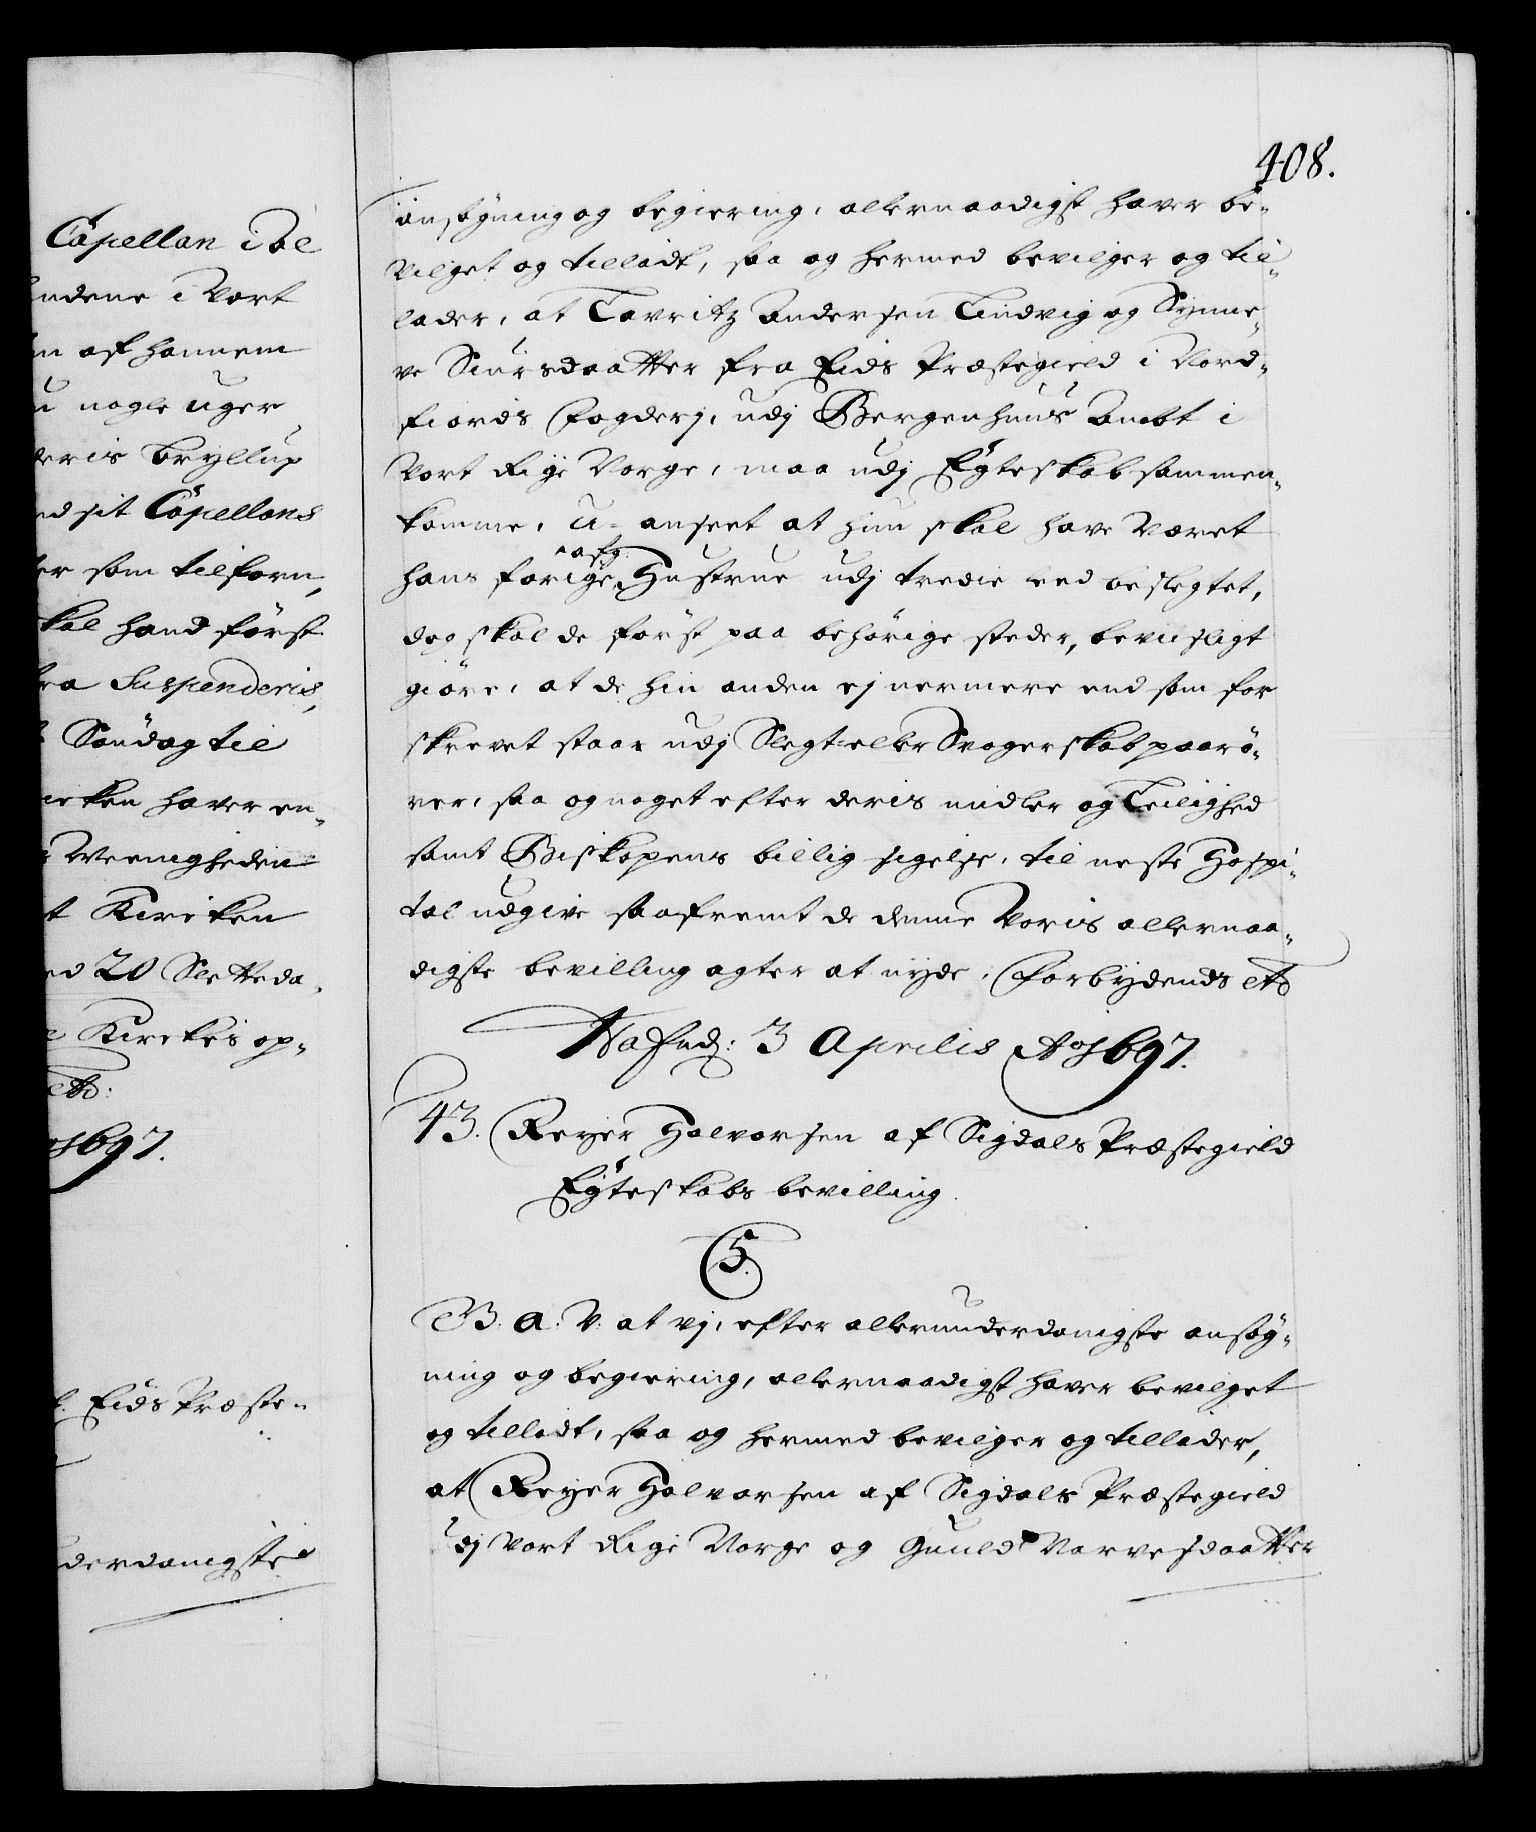 Capellan Pal
ndene i Vort
af hannem
nogle uger
deris bryllup
ed sit Capellans
er som tilforn,
kal hand först
ra Suspenderis,
Söndag til
irken haver en¬
Meenigheden
t Kircken
ed 20 Sletteda¬
Kirckes op¬
etc:
1697.
Eids Præste¬
derdanigste
408.
ansögning og begiering, allernaadigst haver be¬
vilget og tilladt, saa og hermed bevilger og til¬
lader, at Lavritz Andersen Lindvig og Synne¬
ve Siursdaatter fra Eids Præstegield i Nord¬
fiords Fogderj, udj Bergenhuus Ambt i
Vort Rige Norge, maa udj Egteskab sammen¬
komme, u-anseet at hun skal have været
hans forige afg: Hustrue udj tredie leed beslegtet,
dog skal de först paa behörige steder, beviisligt
giöre, at de hin anden ej nermere end som for
skrevet staar udj Slegt eller Svogerskab paarö¬
rer, saa og noget efter deris midler og Leilighed
samt Biskopens billig sigelse, til neste Hospi¬
tal udgive saafremt de denne Voris allernaa¬
digste bevilling agter at nyde, Forbydendes etc
Hafnd: 3 Aprilis Ao 1697.
43. Reyer Halvorsen af Sigdals Præstegield
Egteskabs bevilling.
C5.
G. A. V. at vj, efter allerunderdanigste ansög¬
ning og begiering, allernaadigst haver bevilget
og tilladt, saa og hermed bevilger og tillader,
at Reyer Halvorsen af Sigdals Præstegield
udj Vort Rige Norge og Guuld Narvesdaatter